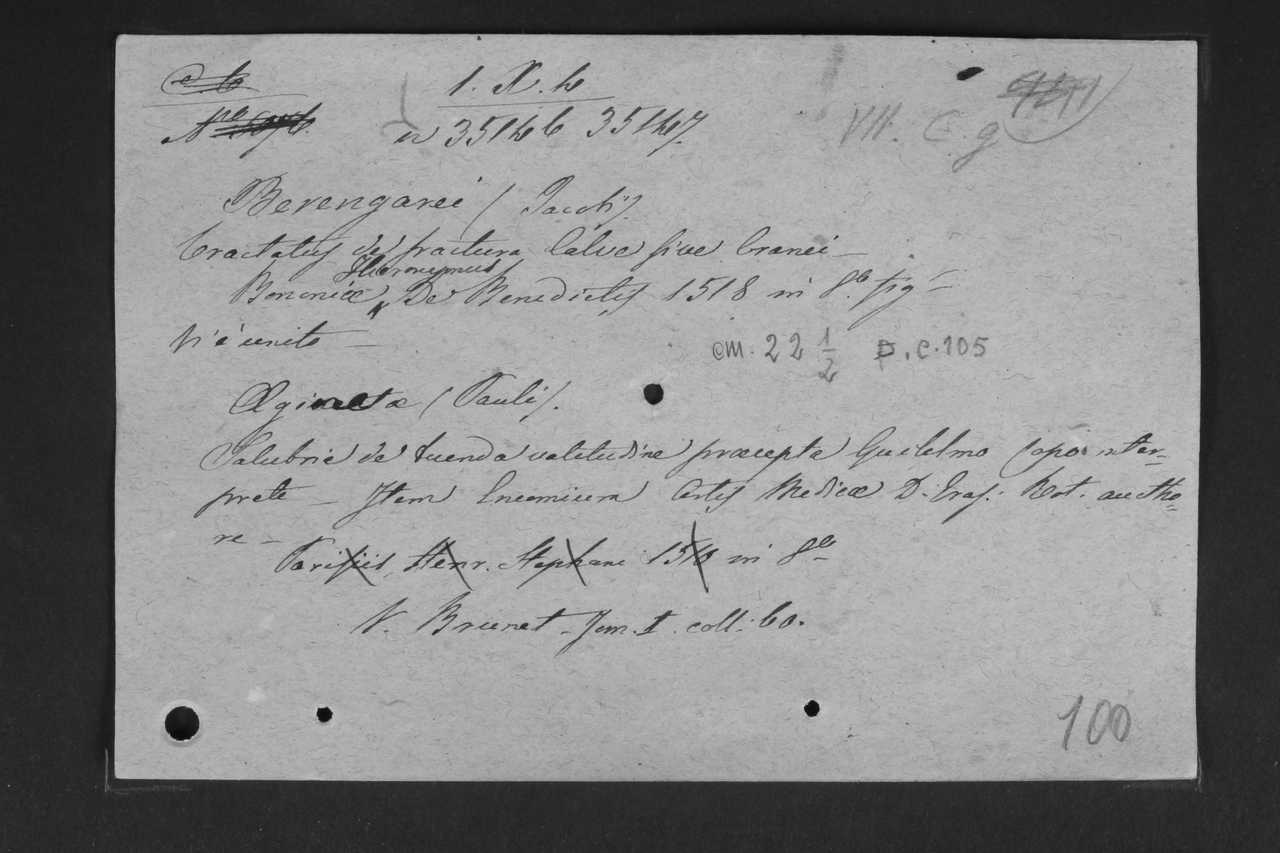 1. X. 4
n 35146 35147.
VII. C. g
Berengarii (Jacobi)
Tractatus de fractura Calve sive Cranei —
Bononiæ, Hieronymus De Benedictis 1518 in 8.º fig —
Vi è unito —
cm. 22 1/2 p. c. 105
Æginetæ (Pauli).
Salubria de tuenda valitudine præcepta Guilelmo Copo inter=
prete — Item Encomium Artis Medicæ D. Eras. Rot. autho=
re —
Parisiis, Henr. Stephani 1510 in 8º
V. Brunet. Tom. I. coll. 60.
100